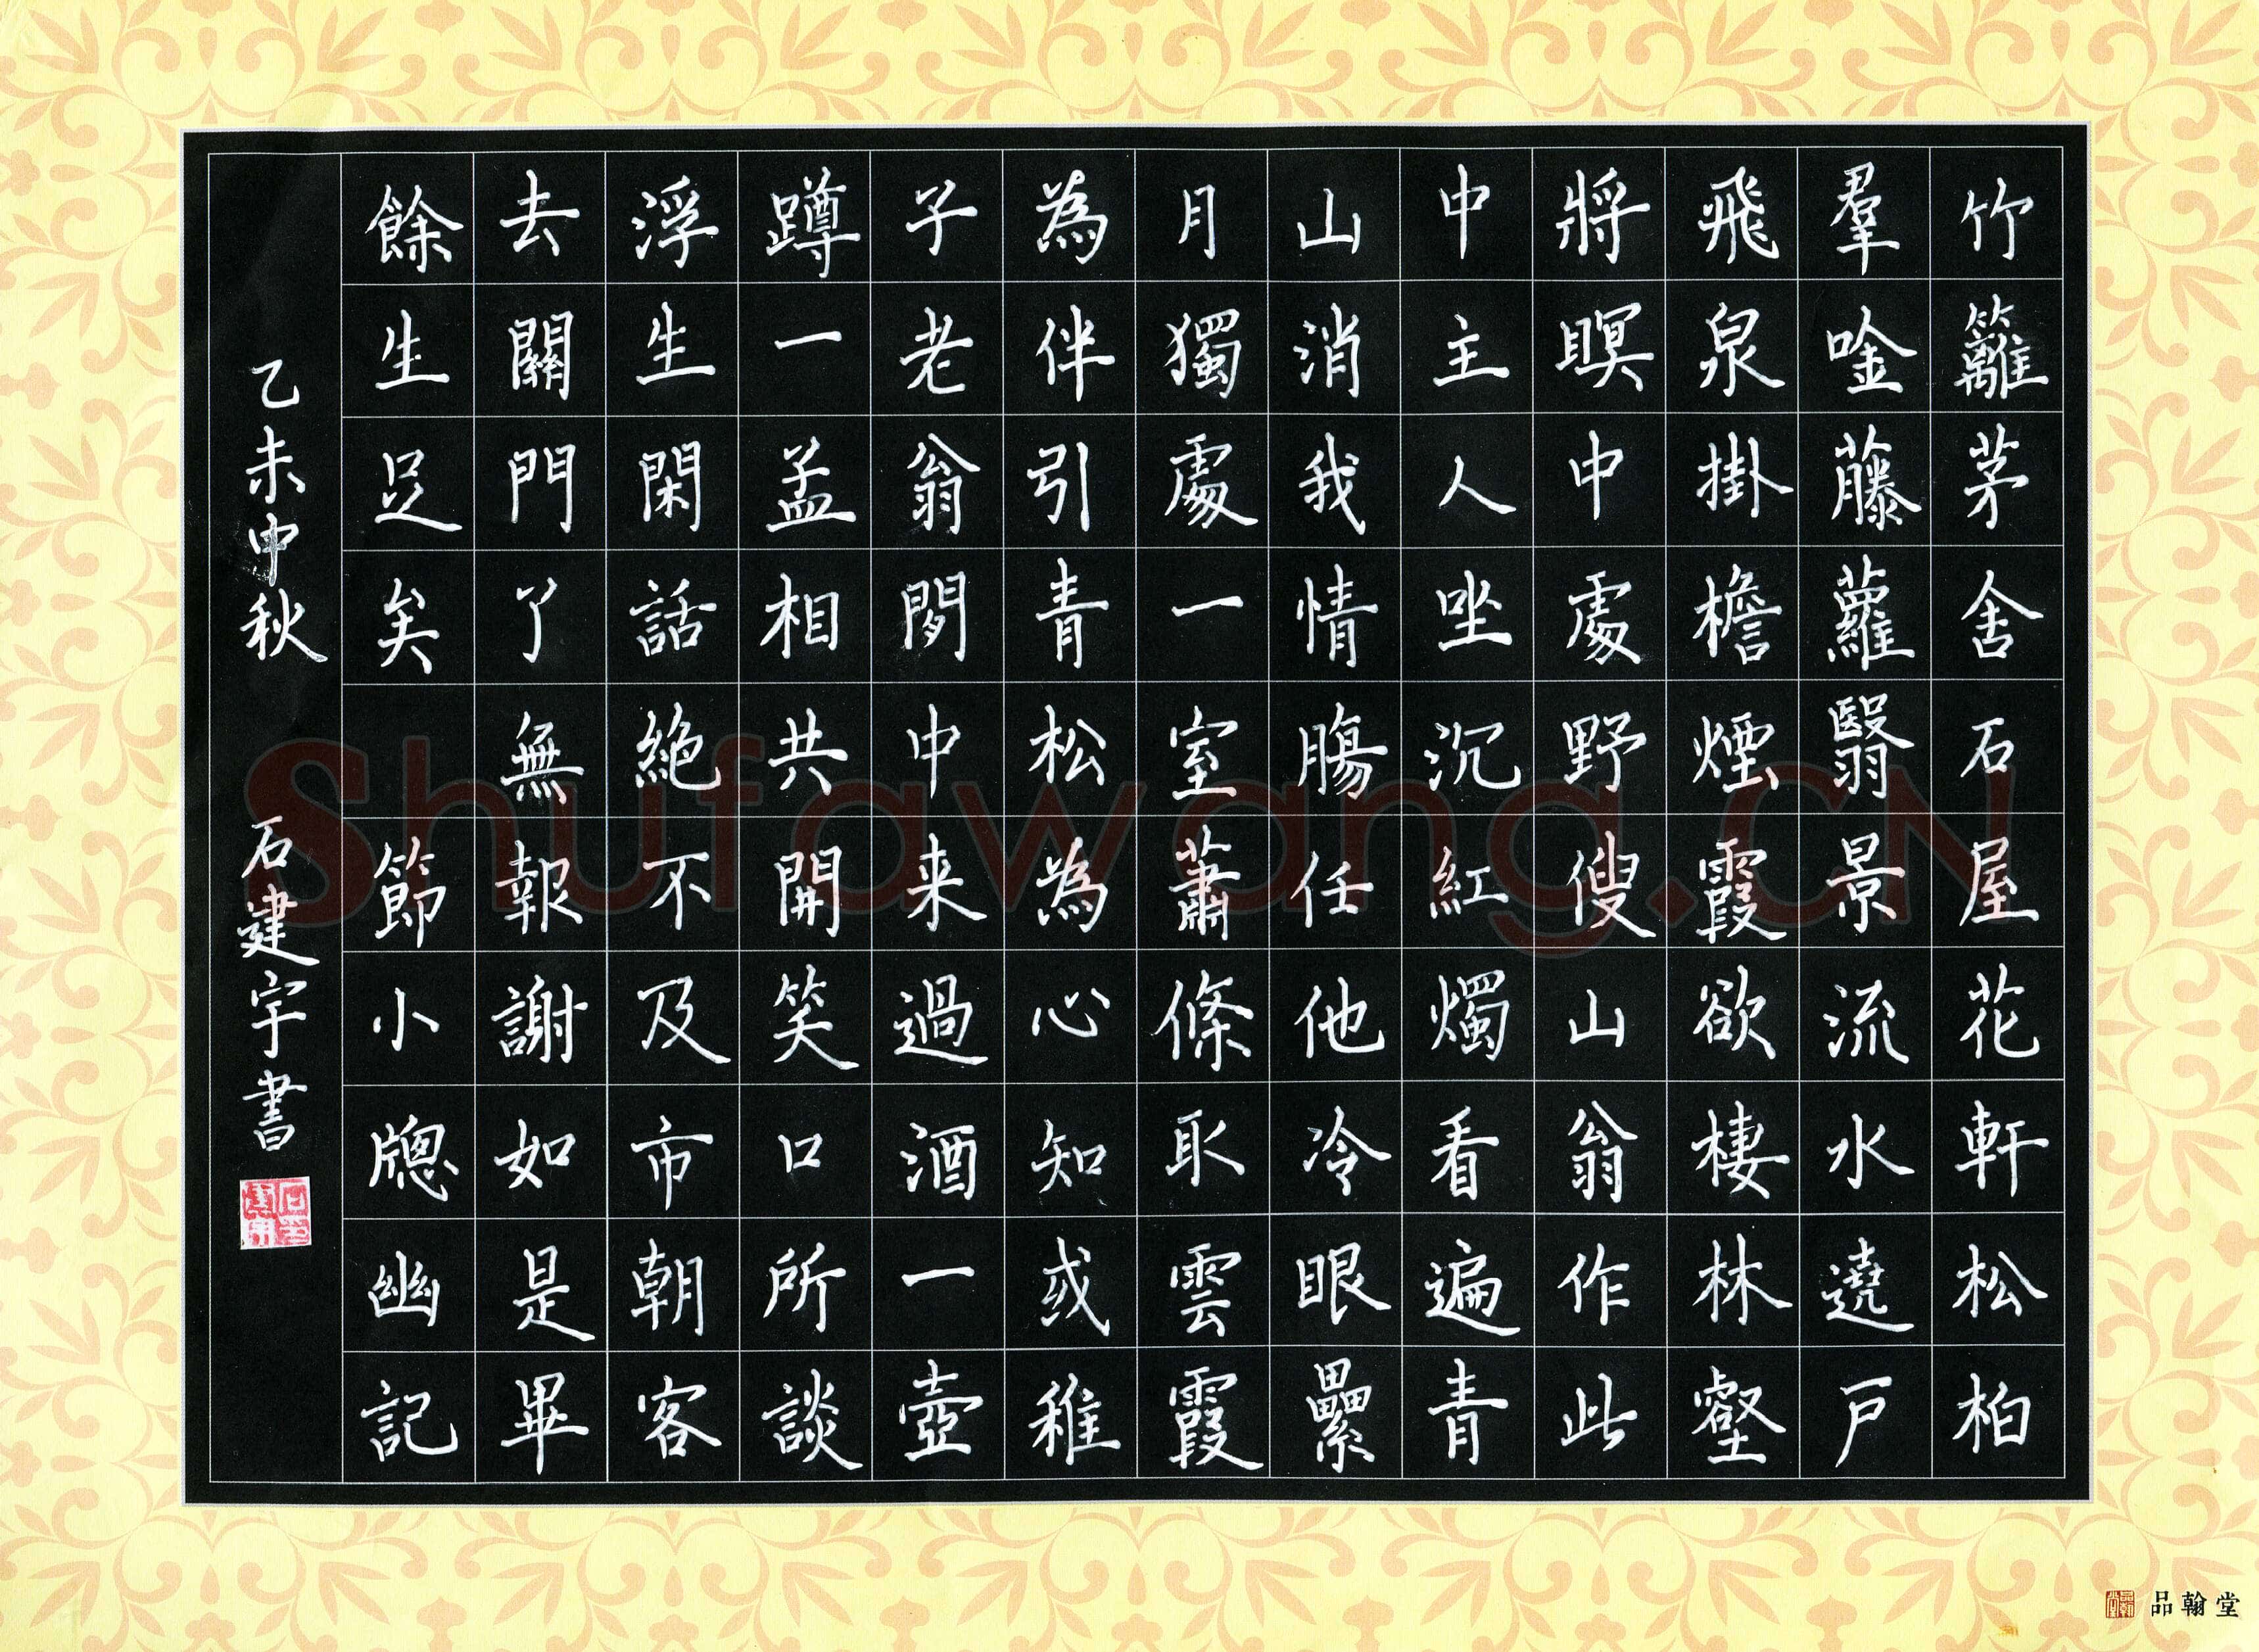 竹籬茅舍石屋花軒松柏
羣唫藤蘿翳景流水遶戸
飛泉掛檐煙霞欲棲林壑
將暝中處野傁山翁作此
中主人坐沉紅燭看遍青
山消我情腸任他冷眼纍
月獨處一室蕭條取雲霞
為伴引青松為心知或稚
子老翁閒中来過酒一壺
蹲一孟相共開笑口所談
浮生閑話絶不及市朝客
去關門了無報謝如是畢
餘生足矣 節小牕幽記
乙未中秋 石建宇書
Shufawang.CN
品翰堂